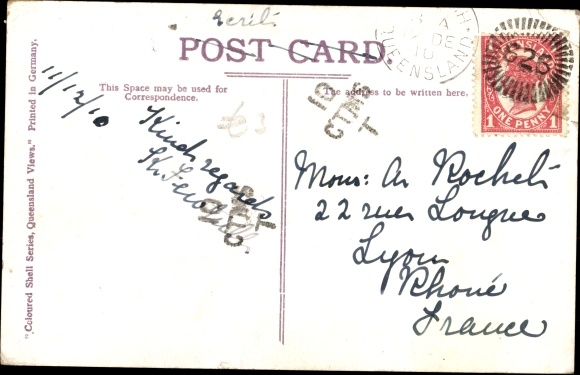 Ecrit
POST CARD.
This Space may be used for
Correspondence.
The address to be written here.
"Coloured Shell Series, Queensland Views." Printed in Germany.
11/12/10
Kind regards
QUEENSLAND
DE
10
628
ONE PENNY
1 1
T
T
Mons: An Rochet
22 rue Longue
Lyon
Rhone
France